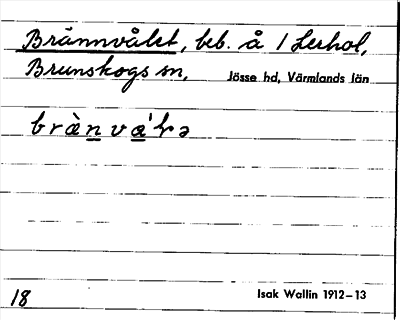 Brännvålet, beb. å 1 Lerhol,
Brunskogs sn, Jösse hd, Värmlands län
18 Isak Wallin 1912–13